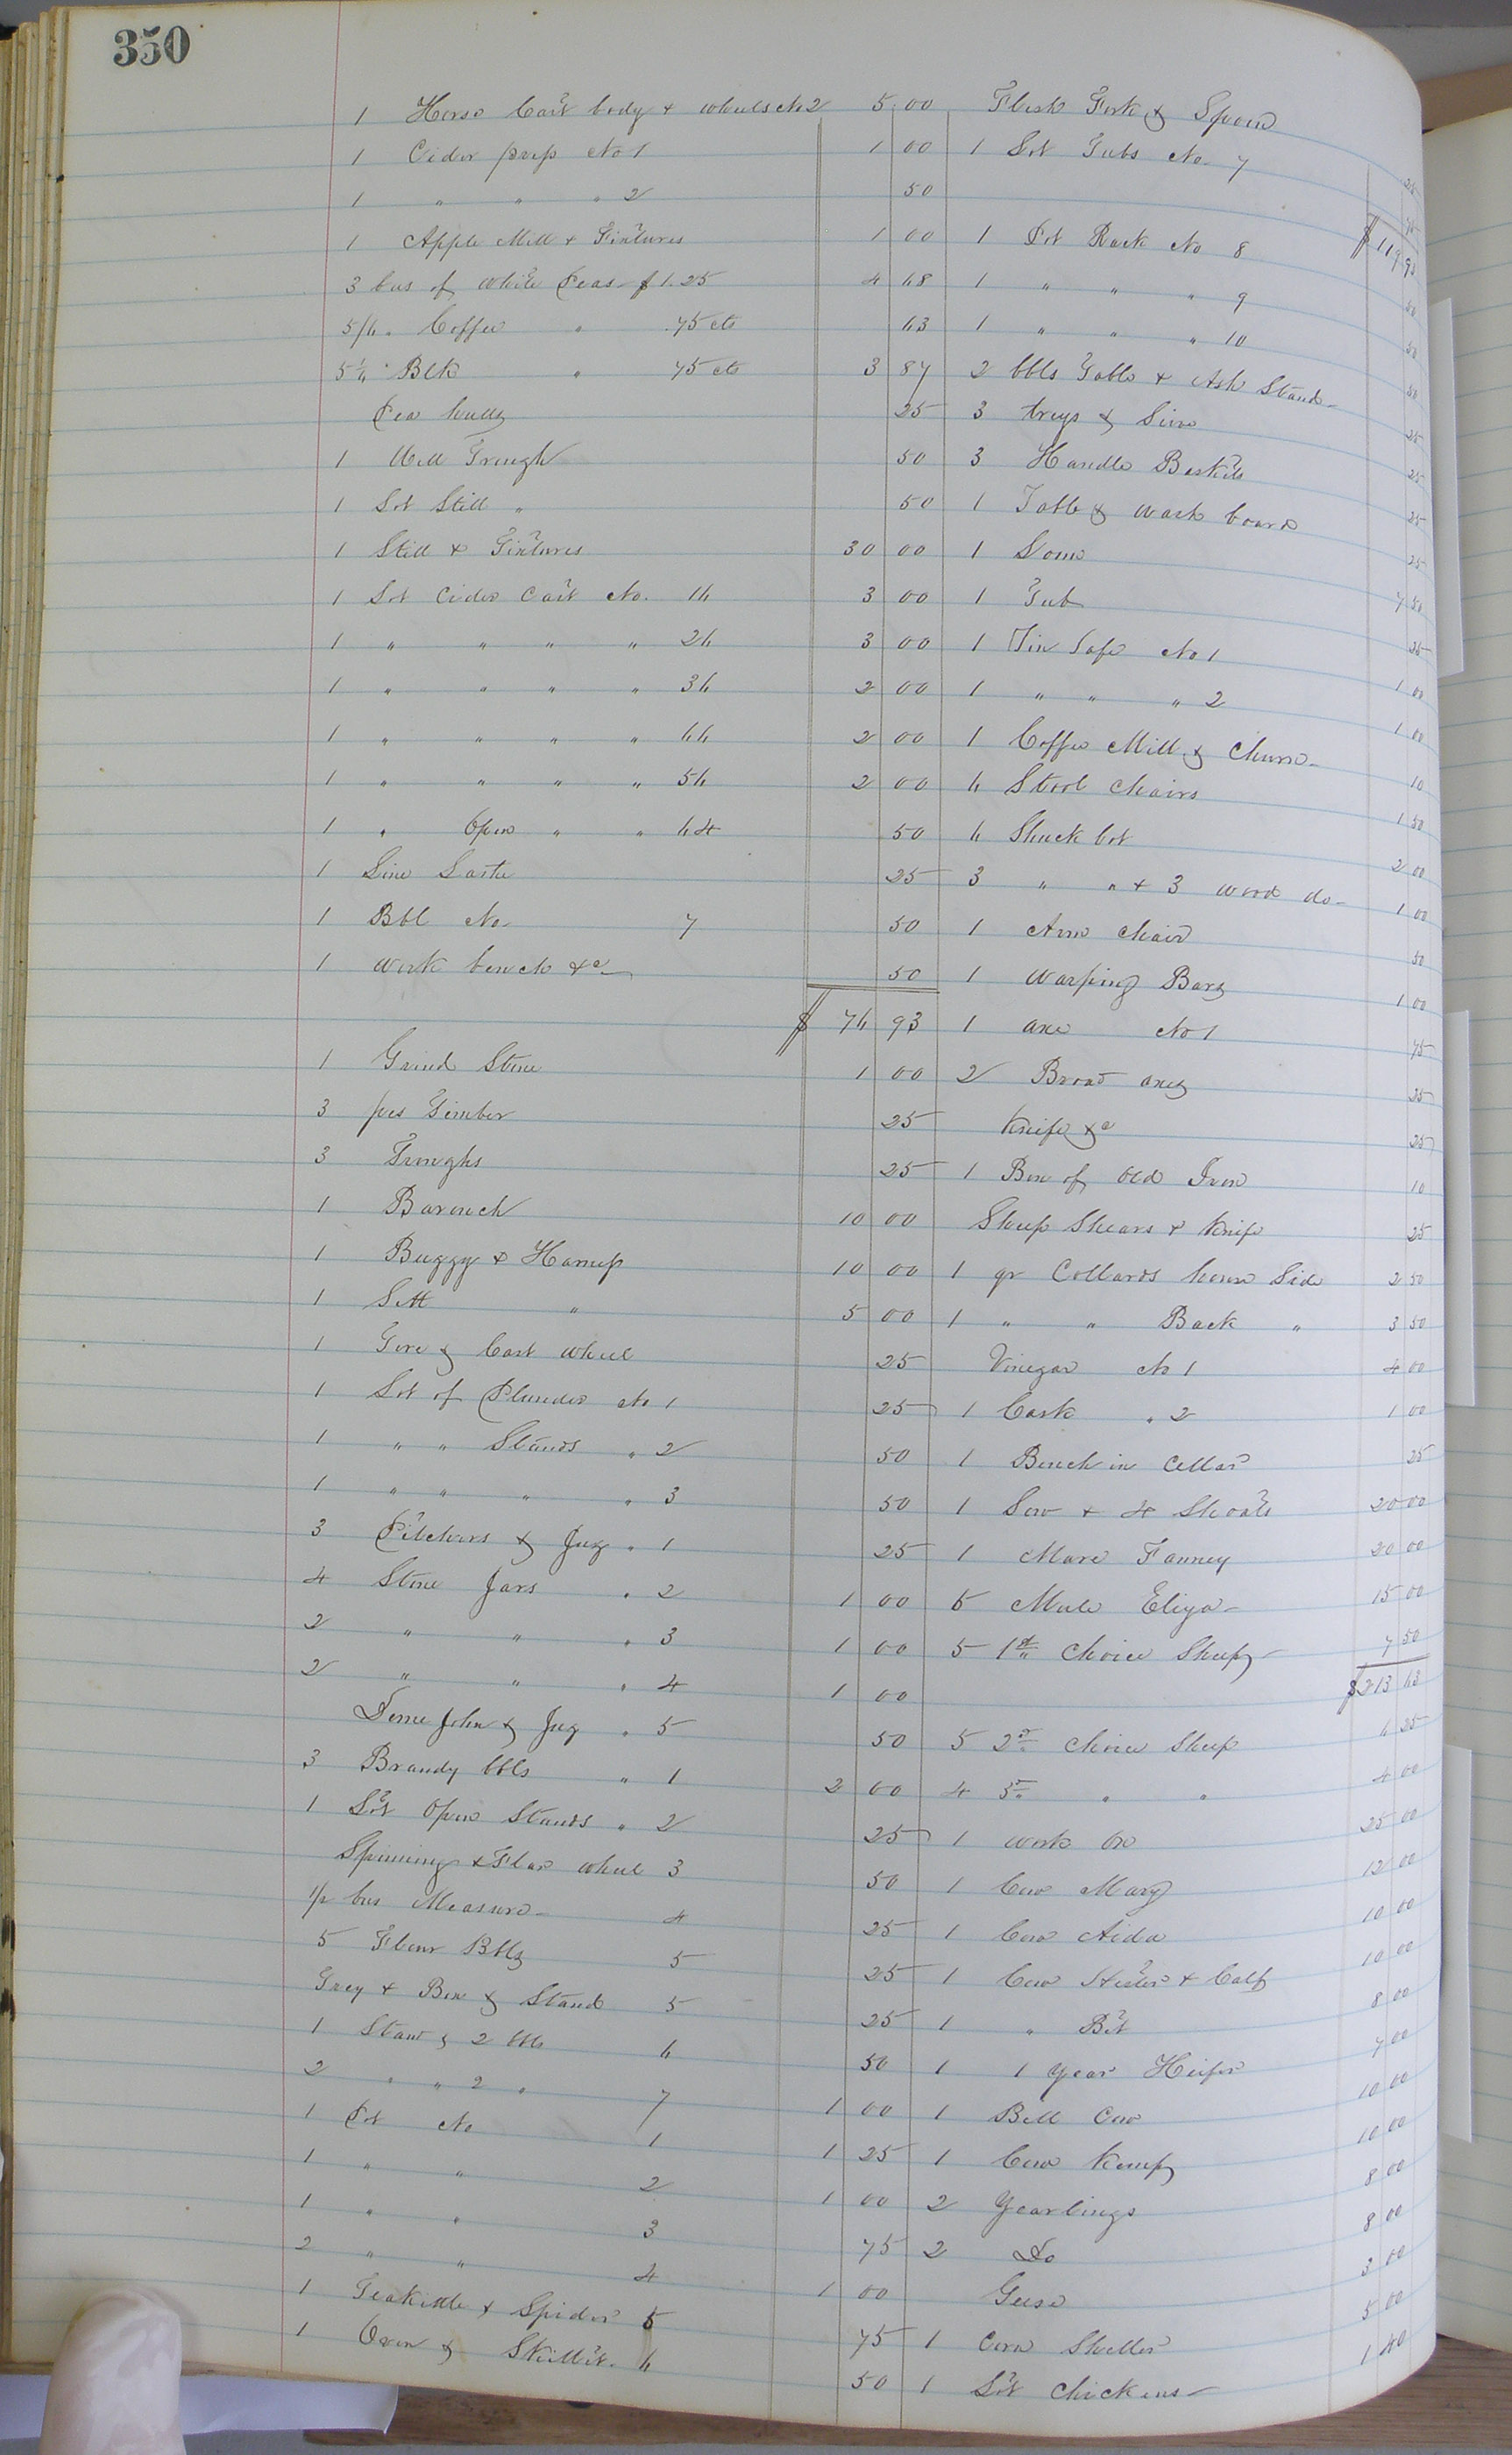 350
1 Horse Cart body & wheels No 2 5 00
1 Cider press No 1 1 00
1 " " " 2 50
1 Apple Mill & Fixtures 1 00
3 bus of white Peas $1.25 4 68
5/6 " Coffee " .75 cts 63
5 1/6 " Blk " 75 cts 3 87
Pea hulls 25
1 Meal Trough 50
1 Lot Still " 50
1 Still & Fixtures 30 00
1 Lot Cider Cast No. 16 3 00
1 " " " " 26 3 00
1 " " " " 36 2 00
1 " " " " 46 2 00
1 " " " " 56 2 00
1 " Open " " 64 50
1 Line 25
1 Bbl No. 7 50
1 work bench &c 50
$ 76 93
1 Grind Stone 1 00
3 pcs Timber 25
3 Troughs 25
1 Barouch 10 00
1 Buggy & Harness 10 00
1 Sett " 5 00
1 Tire & Cart wheel 25
1 Lot of Plunder No 1 25
1 " " Stands " 2 50
1 " " " " 3 50
3 Pitchers & Jug " 1 25
4 Stone Jars " 2 1 00
2 " " " 3 1 00
2 " " " 4 1 00
Deme John & Jug " 5 50
3 Brandy bbls " 1 2 00
1 Lot Open Stands " 2 25
Spinning & Flax wheel 3 50
1/2 bus Measure 4 25
5 Flour Bbls 5 25
Tray & Box & Stand 5 25
1 Stand & 2 bbls 6 50
2 " " 2 " 7 1 00
1 Pot No 1 1 25
1 " " 2 1 00
1 " " 3 75
2 " " 4 1 00
1 Teakittle & Spider 5 75
1 Oven & Skillit 6 50
Flesh Fork & Spoon 25
1 Lot Tubs No. 7 75
$119 93
1 Pot Rack No 8 50
1 " " " 9 50
1 " " " 10 50
2 bbls Table & Ash Stand 25
3 trays & Sieve 25
3 Handle Baskets 25
1 Table & wash board 25
1 Loom 7 50
1 Tub 25
1 Tin Safe No 1 1 00
1 " " " 2 1 00
1 Coffee Mill & Churn 10
6 Stool Chairs 1 50
6 Shuck bot 2 00
3 " " & 3 wood do 1 00
1 Arm Chair 50
1 Warping Bars 1 00
1 axe No 1 75
2 Broad axes 25
Knife &c 25
1 Box of Old Iron 10
Sheep Shears & Knife 25
1 qr Collards house Side 2 50
1 " " Back " 3 50
Vinegar No 1 4 00
1 Cask " 2 1 00
1 Bench in Cellar 25
1 Sow & 4 Shoats 20 00
1 Mare Fanney 20 00
5 Mule Eliza 15 00
5 1st Choice Sheep 7 50
$213 63
5 2d Choice Sheep 6 25
4 3d " " 4 00
1 work Ox 25 00
1 Cow Mary 12 00
1 Cow Aida 10 00
1 Cow & Calf 10 00
1 " Bet 8 00
1 1 year Heifer 7 00
1 Bell Cow 10 00
1 Cow Kemp 10 00
2 Yearlings 8 00
2 Do 8 00
Geese 3 00
1 Corn Sheller 5 00
1 Lot Chickens 1 40